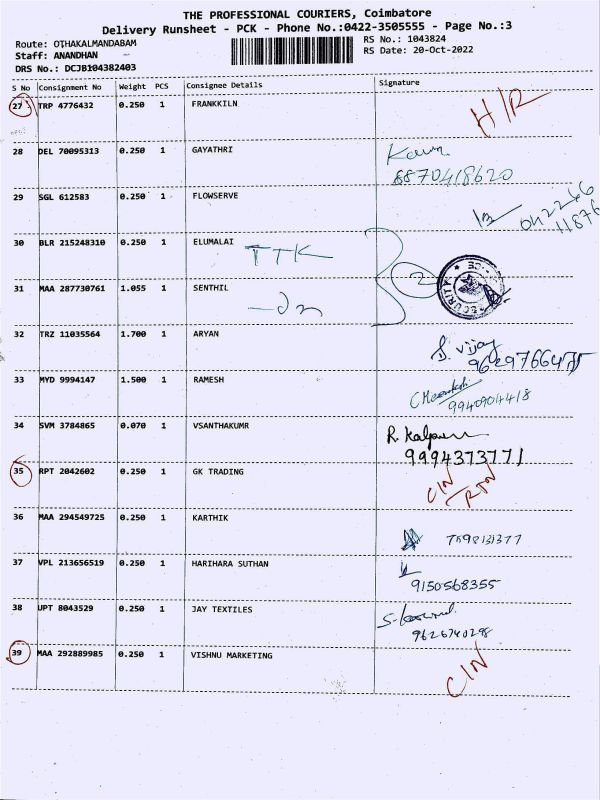 THE PROFESSIONAL COURIERS, Coimbatore
Delivery Runsheet - PCK - Phone No.:0422-3505555 - Page No.:3
Route: OTHAKALMANDABAM RS No.: 1043824
Staff: ANANDHAN RS Date: 20-Oct-2022
DRS No.: DCJB104382403
S No Consignment No Weight PCS Consignee Details Signature
27 TRP 4776432 0.250 1 FRANKKILN H/R
28 DEL 70095313 0.250 1 GAYATHRI
8870418620
29 SGL 612583 0.250 1 FLOWSERVE
30 BLR 215248310 0.250 1 ELUMALAI TTK
31 MAA 287730761 1.055 1 SENTHIL 2 SECURITY
32 TRZ 11035564 1.700 1 ARYAN S. Vijay
33 MYD 9994147 1.500 1 RAMESH
9940904418
34 SVM 3784865 0.070 1 VSANTHAKUMR R. Kalpana
9994373771
35 RPT 2042602 0.250 1 GK TRADING C/N
RTN
36 MAA 294549725 0.250 1 KARTHIK
37 VPL 213656519 0.250 1 HARIHARA SUTHAN
9150568355
38 UPT 8043529 0.250 1 JAY TEXTILES
9626740298
39 MAA 292889985 0.250 1 VISHNU MARKETING C/N